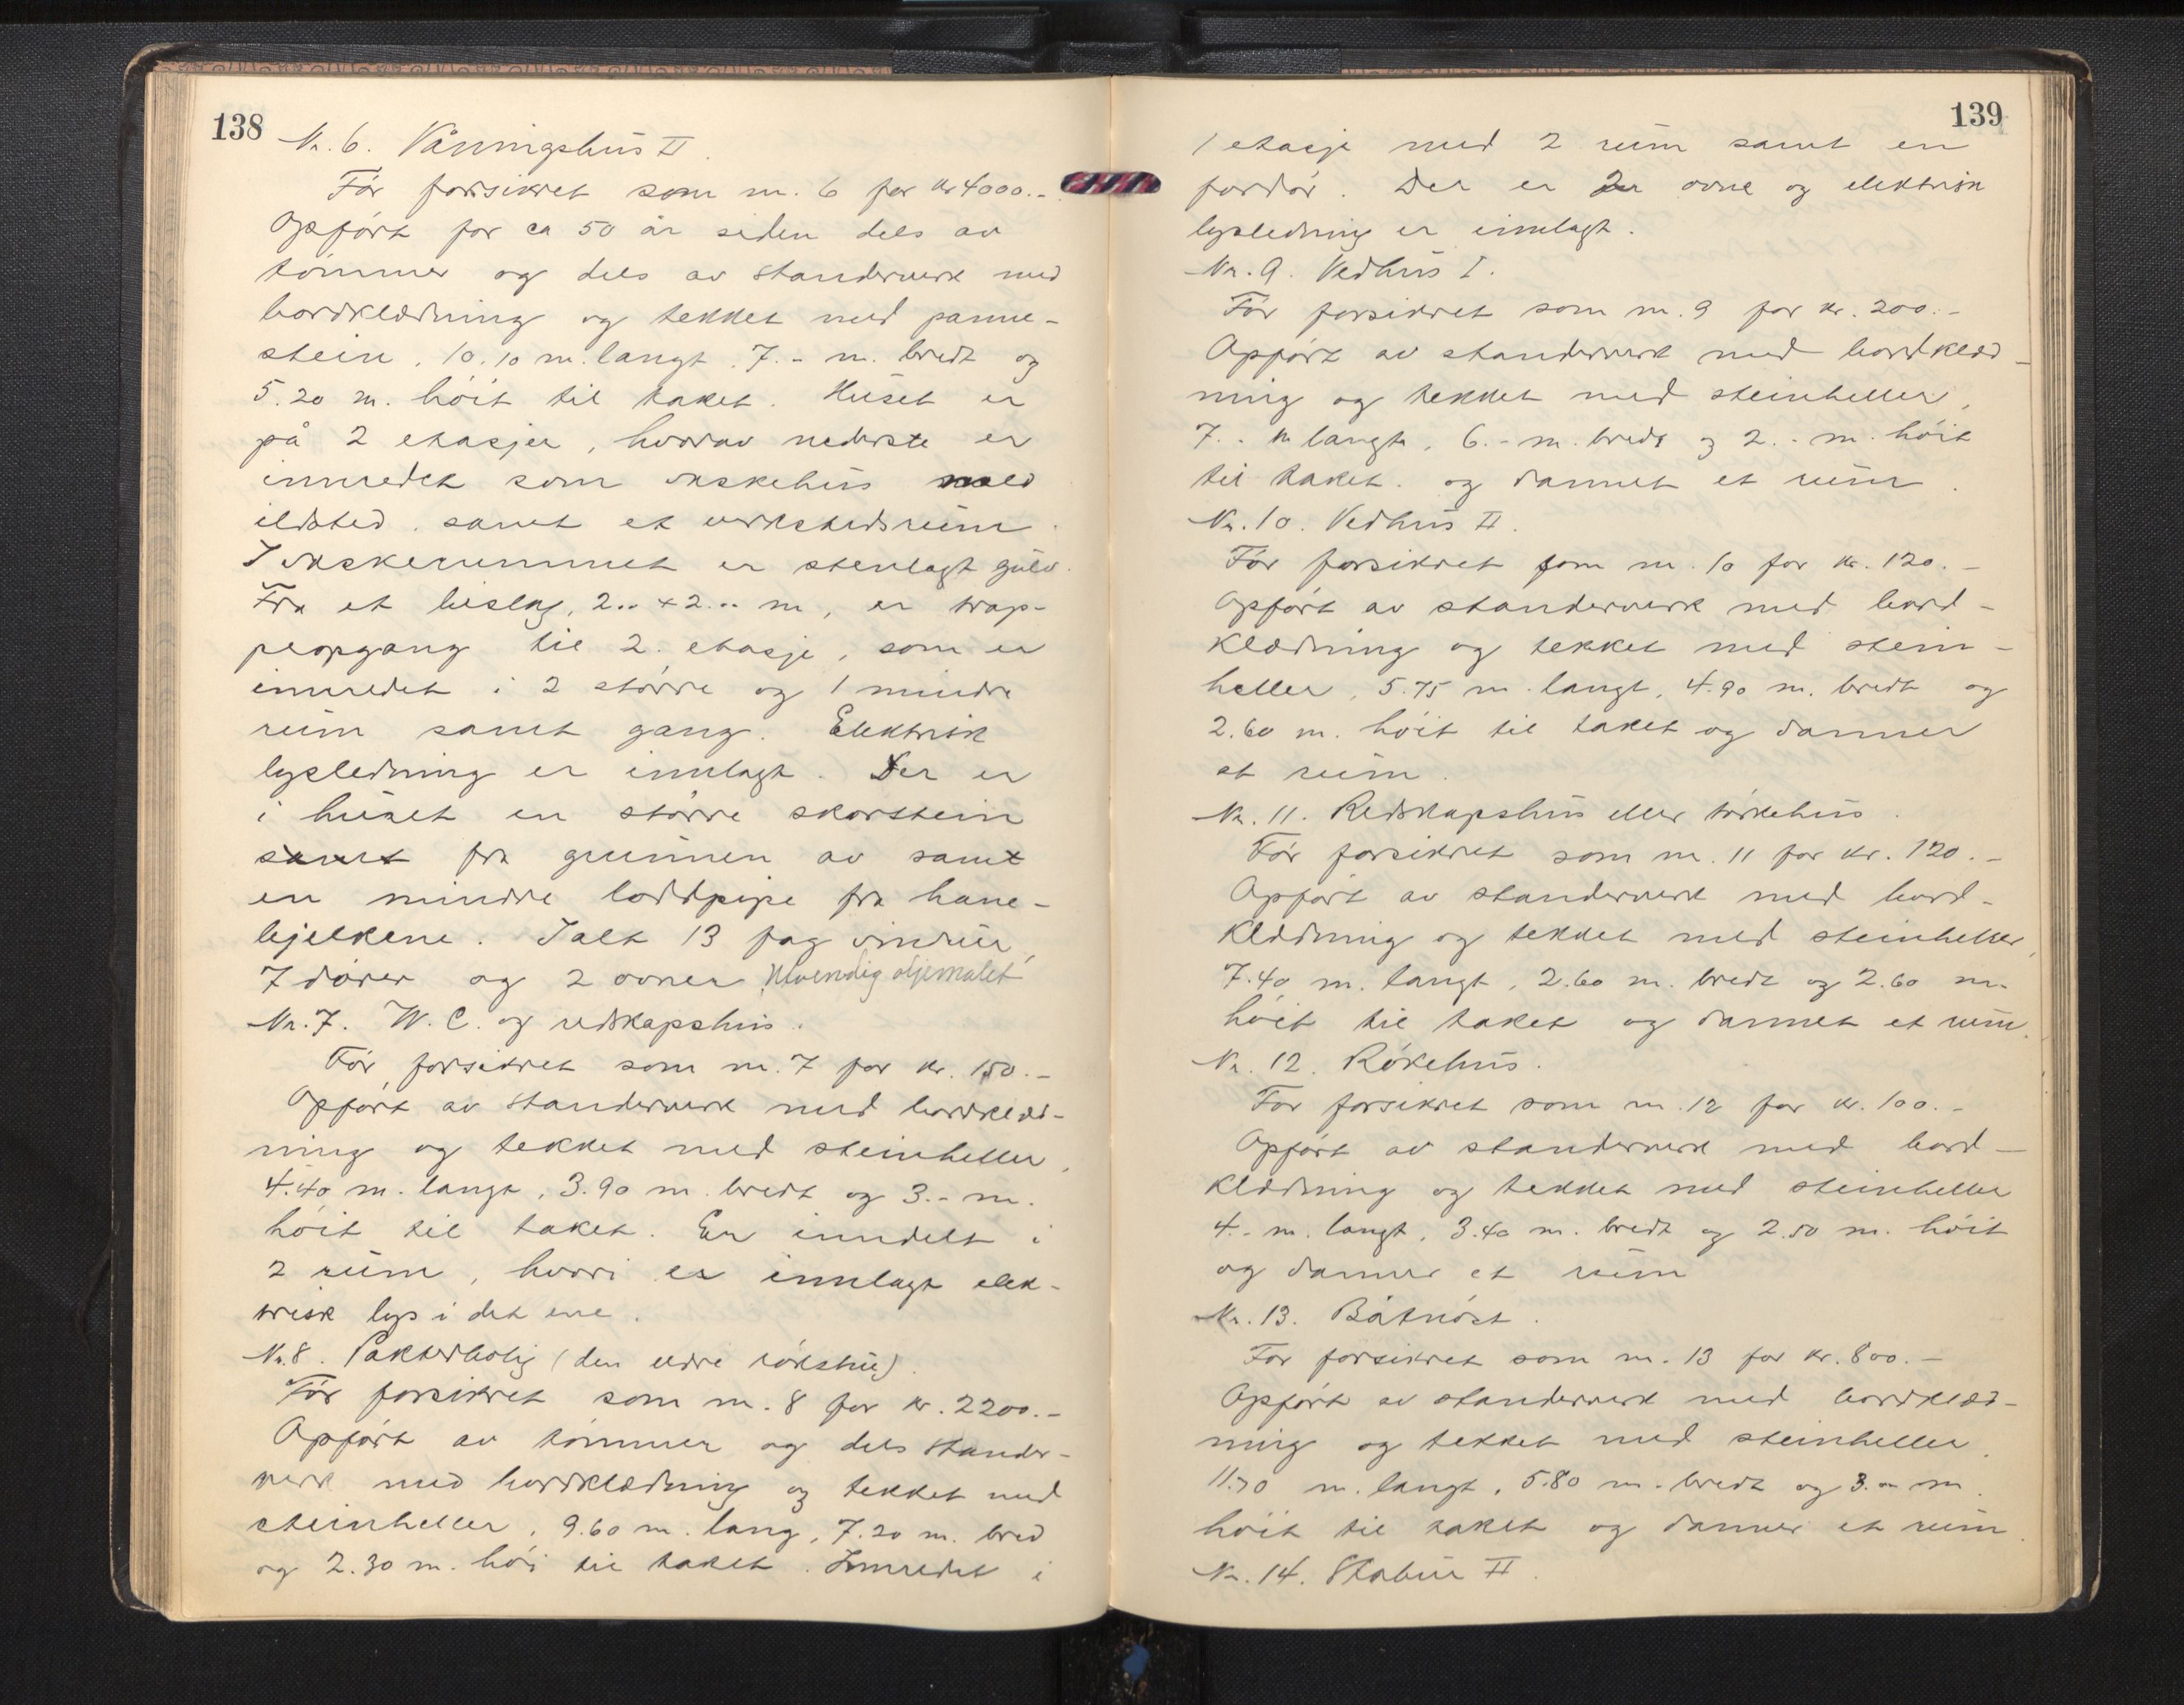 138
Nr. 6. Våningshus II.
Før forsikret som nr. 6 for kr 4000.-
Opført for ca 50 år siden dels av
tømmer og dels av standerverk med
bordklædning og tekket med panne-
stein, 10.10 m. langt, 7.- m. bredt og
5.20 m. høit til taket. Huset er
på 2 etasjer, hvorav nederste er
innredet som vaskehus med
ildsted samt et verkstedsrum.
I vaskerummet er stenlagt gulv.
Fra et bislag, 2.- x 2.- m, er trap-
peopgang til 2. etasje, som er
innredet i 2 større og 1 mindre
rum samt gang. Elektrisk
lysledning er innlagt. Der er
i huset en større skorstein
samt fra grunnen av samt
en mindre loddpipe fra hane-
bjelkene. Ialt 13 fag vinduer,
7 dører og 2 ovner. Utvendig oljemalet
Nr. 7. W.C. og redskapshus.
Før forsikret som nr. 7 for kr. 150.-
Opført av standerverk med bordklæd-
ning og tekket med steinheller,
4.40 m. langt, 3.90 m. bredt og 3.- m.
høit til taket. Er inndelt i
2 rum, hvori er innlagt elek-
trisk lys i det ene.
Nr. 8. Pakterbolig (den eldre røkstue).
Før forsikret som nr. 8 for kr. 2200.-
Opført av tømmer og dels stander-
verk med bordklædning og tekket med
steinheller, 9.60 m. lang, 7.20 m. bred
og 2.30 m. høi til taket. Innredet i
139
1 etasje med 2 rum samt en
fordør. Der er 2 ovne og elektrisk
lysledning er innlagt.
Nr. 9. Vedhus I.
Før forsikret som nr. 9 for kr. 200.-
Opført av standerverk med bordklæd-
ning og tekket med steinheller,
7.- m langt, 6.- m. bredt og 2.- m. høit
til taket og dannet et rum.
Nr. 10. Vedhus II.
Før forsikret som nr. 10 for kr. 120.-
Opført av standerverk med bord-
klædning og tekket med stein-
heller, 5.75 m. langt, 4.90 m. bredt og
2.60 m. høit til taket og danner
et rum.
Nr. 11. Redskapshus eller tørkehus.
Før forsikret som nr. 11 for kr. 120.-
Opført av standerverk med bord-
klædning og tekket med steinheller,
7.40 m. langt, 2.60 m. bredt og 2.60 m.
høit til taket og dannet et rum.
Nr. 12. Røkehus.
Før forsikret som nr. 12 for kr. 100.-
Opført av standerverk med bord-
klædning og tekket med steinheller
4.- m. langt, 3.40 m. bredt og 2.50 m. høit
og danner et rum
Nr. 13. Båtnøst.
Før forsikret som nr. 13 for kr. 800.-
Opført av standerverk med bordklæd-
ning og tekket med steinheller,
11.70 m. langt, 5.80 m. bredt og 3.- m.
høit til taket og danner et rum.
Nr. 14. Stabur II.